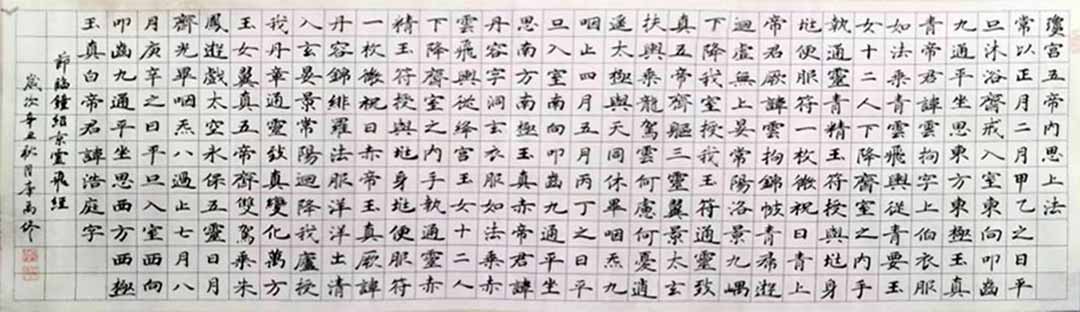 瓊宮五帝內思上法
常以正月二月甲乙之日平
旦沐浴齊戒入室東向叩齒
九通平坐思東方東極玉真
青帝君諱雲拘字上伯衣服
如法乘青雲飛輿從青要玉
女十二人下降齋室之內手
執通靈青精玉符授與兆身
兆便服符一枚微祝曰青上
帝君厥諱雲拘錦帔青帬遊
迴虛無上晏常陽洛景九嵎
下降我室授我玉符通靈致
真五帝齊軀三靈翼景太玄
扶輿乘龍駕雲何慮何憂逍
遙太極與天同休畢咽炁九
咽止四月五月丙丁之日平
旦入室南向叩齒九通平坐
思南方南極玉真赤帝君諱
丹容字洞玄衣服如法乘赤
雲飛輿從絳宮玉女十二人
下降齋室之內手執通靈赤
精玉符授與兆身兆便服符
一枚微祝曰赤帝玉真厥諱
丹容錦緋羅法服洋洋出清
入玄晏景常陽迴降我廬授
我丹章通靈致真變化萬方
玉女翼真五帝齊雙駕乘朱
鳳遊戲太空永保五靈日月
齊光畢咽炁八過止七月八
月庚辛之日平旦入室西向
叩齒九通平坐思西方西極
玉真白帝君諱浩庭字
節臨鐘紹京靈飛經
歲次辛丑秋月李禹